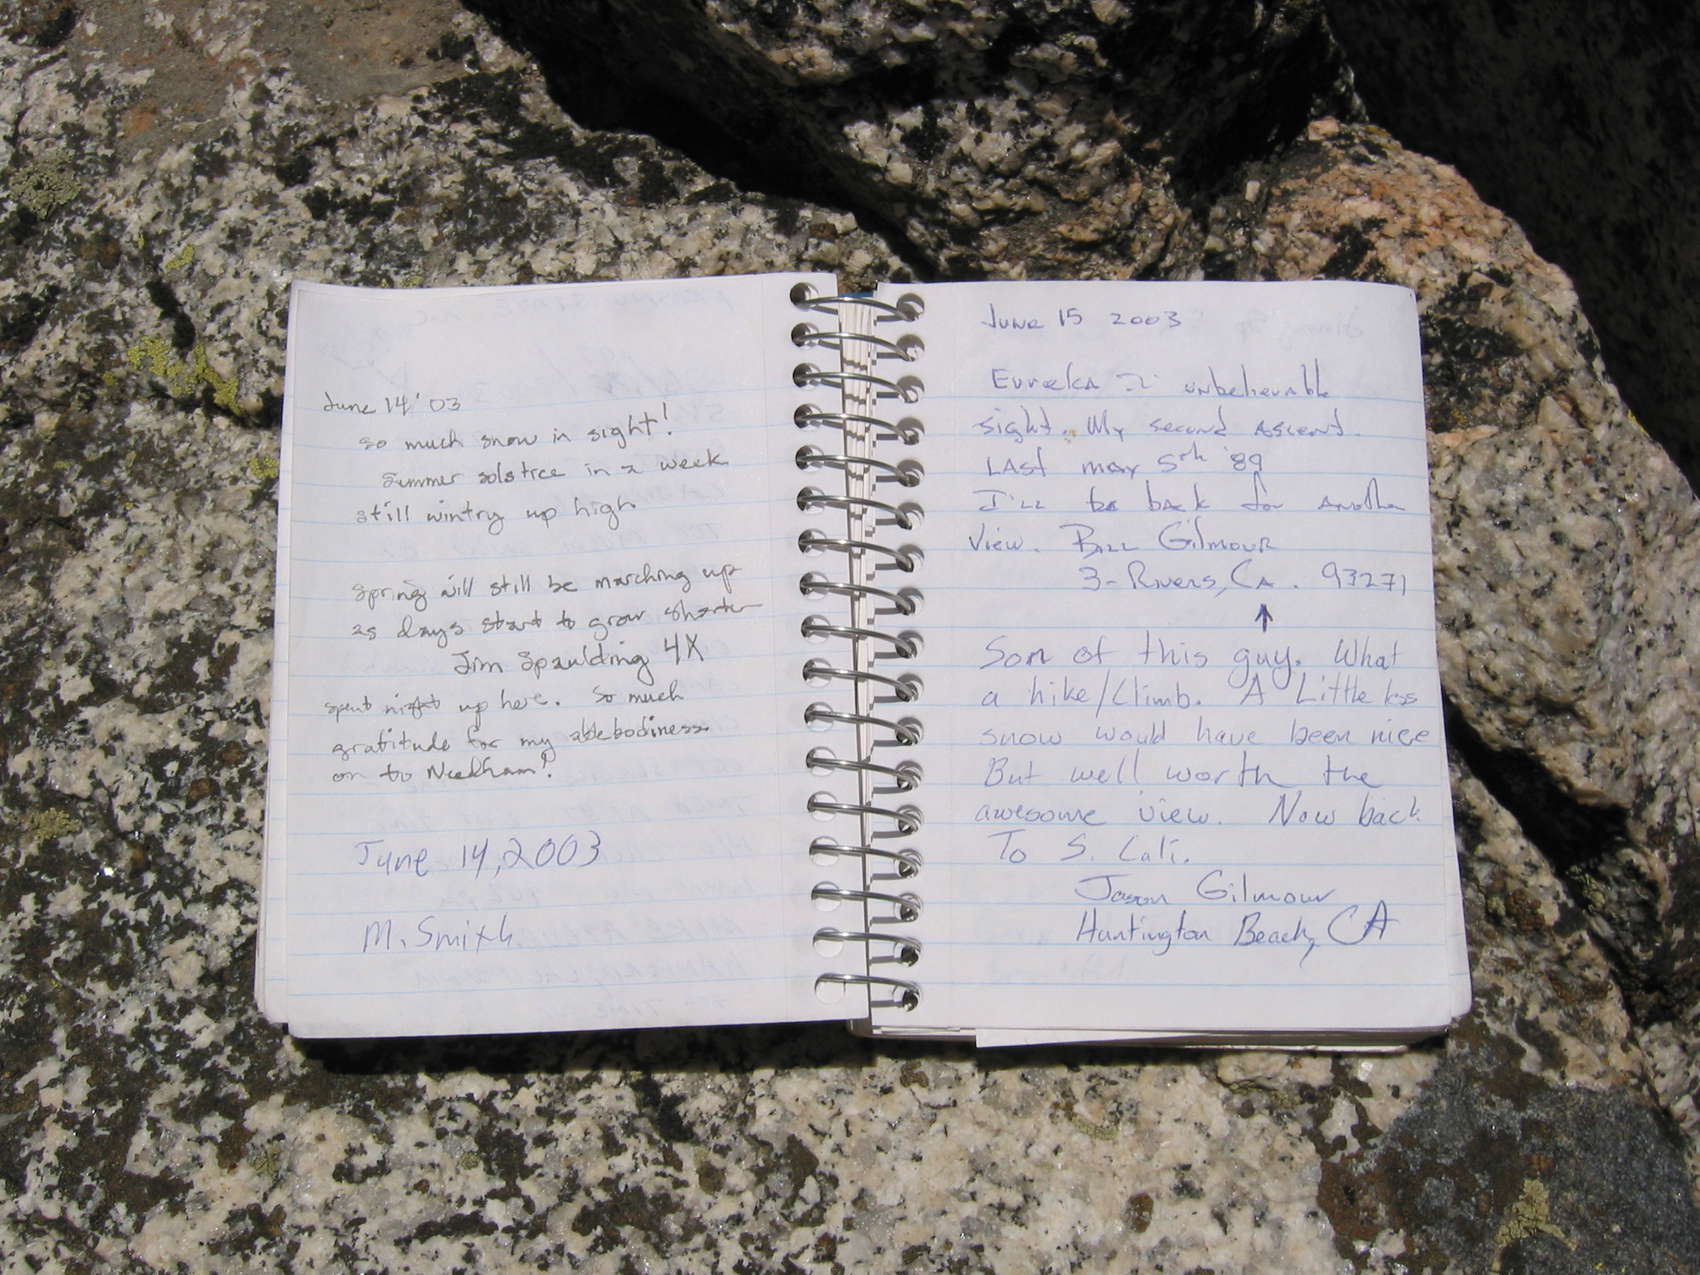 June 14 '03
so much snow in sight!
summer solstice in a week
still wintry up high
spring will still be marching up
as days start to grow shorter
Jim Spaulding 4X
spent night up here. So much
gratitude for my ablebodiness
on to Needham!
June 14, 2003
M. Smith
June 15 2003
Eureka unbelievable
sight. My second Ascent.
LAst may 5th '89
I'll be back for Another
View. Bill Gilmour
3-Rivers, CA. 93271
Son of this guy. What
a hike/Climb. A Little less
snow would have been nice
But well worth the
awesome view. Now back
To S. Cali.
Jason Gilmour
Huntington Beach, CA